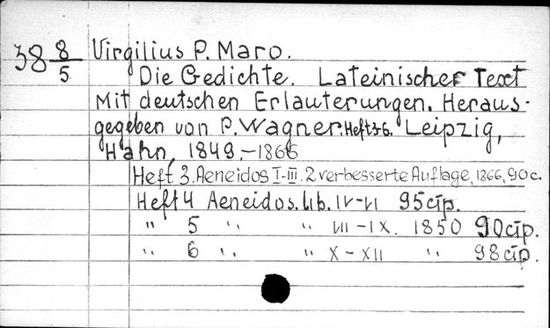 38 8/5 Virgilius P. Maro.
Die Gedichte. Lateinischer Text
Mit deutschen Erlauterungen. Heraus-
gegeben von P. Wagner. Heft 3-6. Leipzig,
Hahn, 1849.-1866
Heft 3. Aeneidos I-III. 2 verbesserte Auflage, 1866, 90 c.
Heft 4 Aeneidos. Lib. IV-VI 95 cтр.
" 5 " " VII-IX. 1850 90 cтр.
" 6 " " X-XII " 98 cтр.